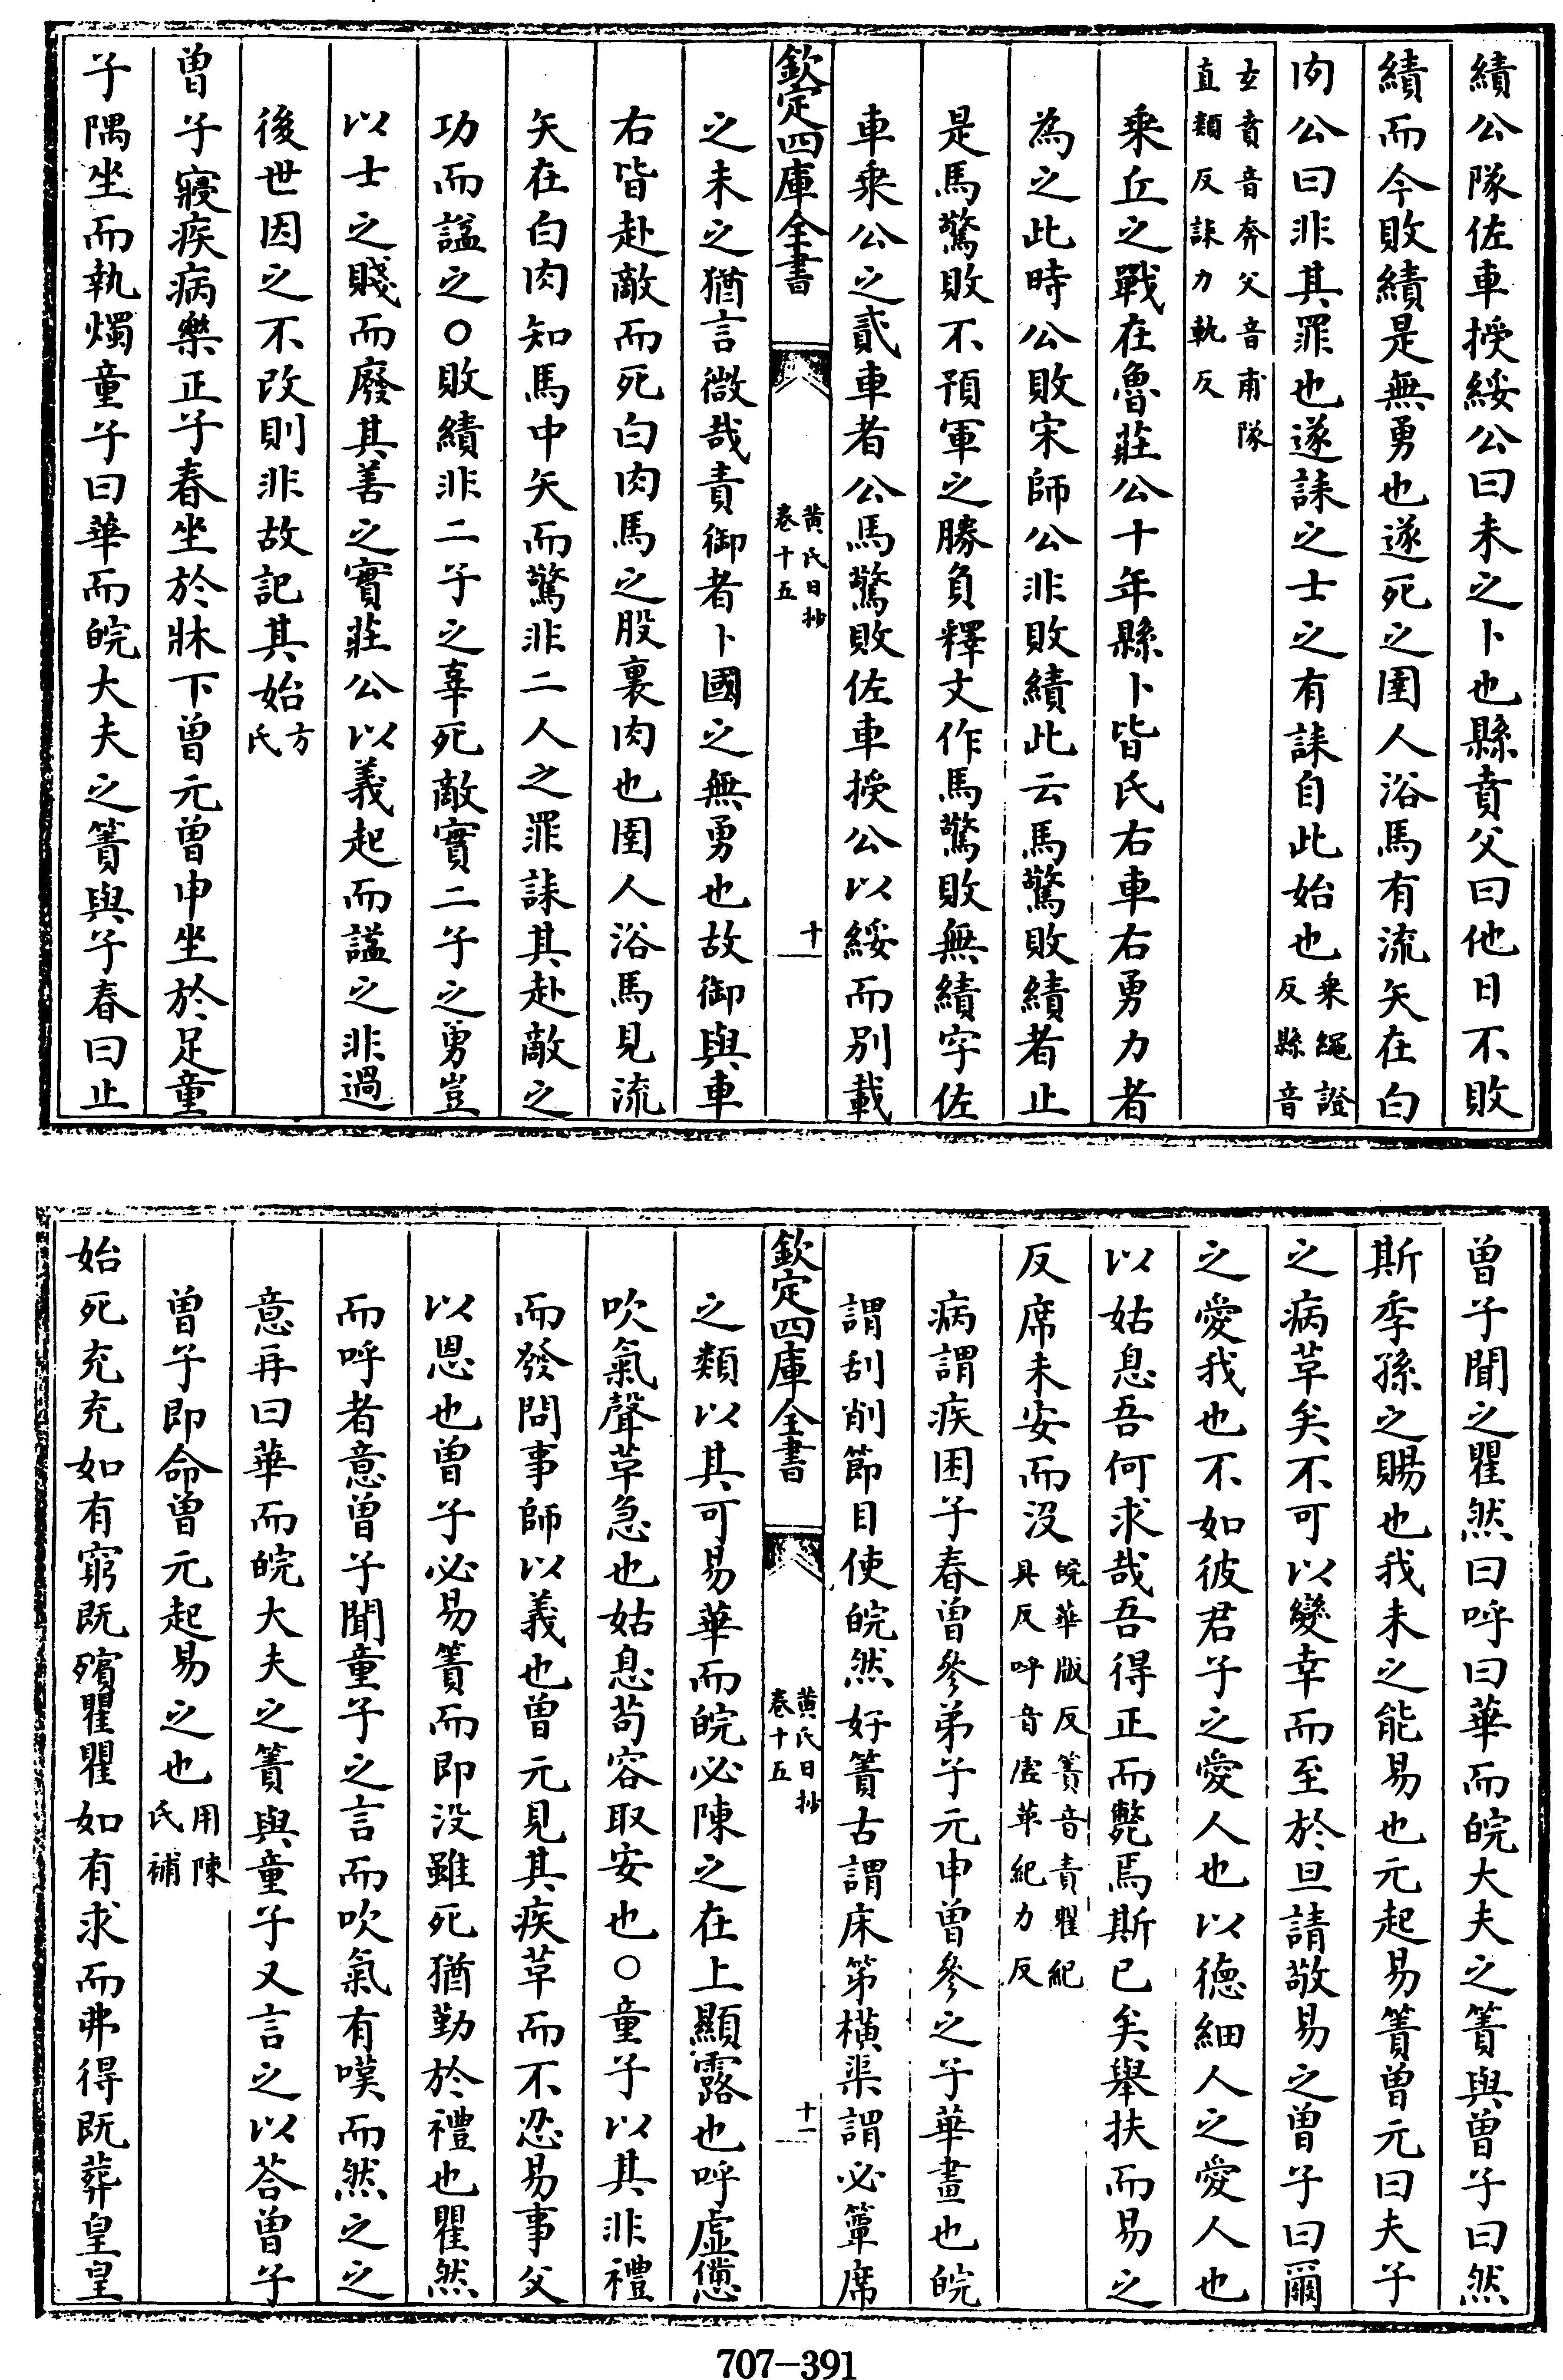 績公隊佐車授綏公曰未之卜也縣賁父曰他日不敗
績而今敗績是無勇也遂死之圉人浴馬有流矢在白
肉公曰非其罪也遂誄之士之有誄自此始也乘繩證反縣音
玄賁音奔父音甫隊直類反誄力軌反
乘丘之戰在魯莊公十年縣卜皆氏右車右勇力者
為之此時公敗宋師公非敗績此云馬驚敗績者止
是馬驚敗不預軍之勝負釋文作馬驚敗無績字佐
車乘公之貳車者公馬驚敗佐車授公以綏而別載
欽定四庫全書
黃氏日抄
卷十五
十
之未之猶言微哉責御者卜國之無勇也故御與車
右皆赴敵而死白肉馬之股裏肉也圉人浴馬見流
矢在白肉知馬中矢而驚非二人之罪誄其赴敵之
功而諡之○敗績非二子之辜死敵實二子之勇豈
以士之賤而廢其善之實莊公以義起而諡之非過
後世因之不改則非故記其始方氏
曾子寢疾病樂正子春坐於牀下曾元曾申坐於足童
子隅坐而執燭童子曰華而皖大夫之簀與子春曰止
曾子聞之瞿然曰呼曰華而皖大夫之簀與曾子曰然
斯季孫之賜也我未之能易也元起易簀曾元曰夫子
之病革矣不可以變幸而至於旦請敬易之曾子曰爾
之愛我也不如彼君子之愛人也以德細人之愛人也
以姑息吾何求哉吾得正而斃焉斯已矣舉扶而易之
反席未安而沒皖華版反簀音責瞿紀具反呼音虛革紀力反
病謂疾困子春曾參弟子元申曾參之子華畫也皖
謂刮削節目使皖然好簀古謂床笫橫渠謂必簟席
欽定四庫全書
黃氏日抄
卷十五
十一
之類以其可易華而皖必陳之在上顯露也呼虛憊
吹氣聲革急也姑息苟容取安也○童子以其非禮
而發問事師以義也曾元見其疾革而不忍易事父
以恩也曾子必易簀而即没雖死猶勤於禮也瞿然
而呼者意曾子聞童子之言而吹氣有嘆而然之之
意再曰華而皖大夫之簀與童子又言之以荅曾子
曾子即命曾元起易之也用陳氏補
始死充充如有窮既殯瞿瞿如有求而弗得既葬皇皇
707-391